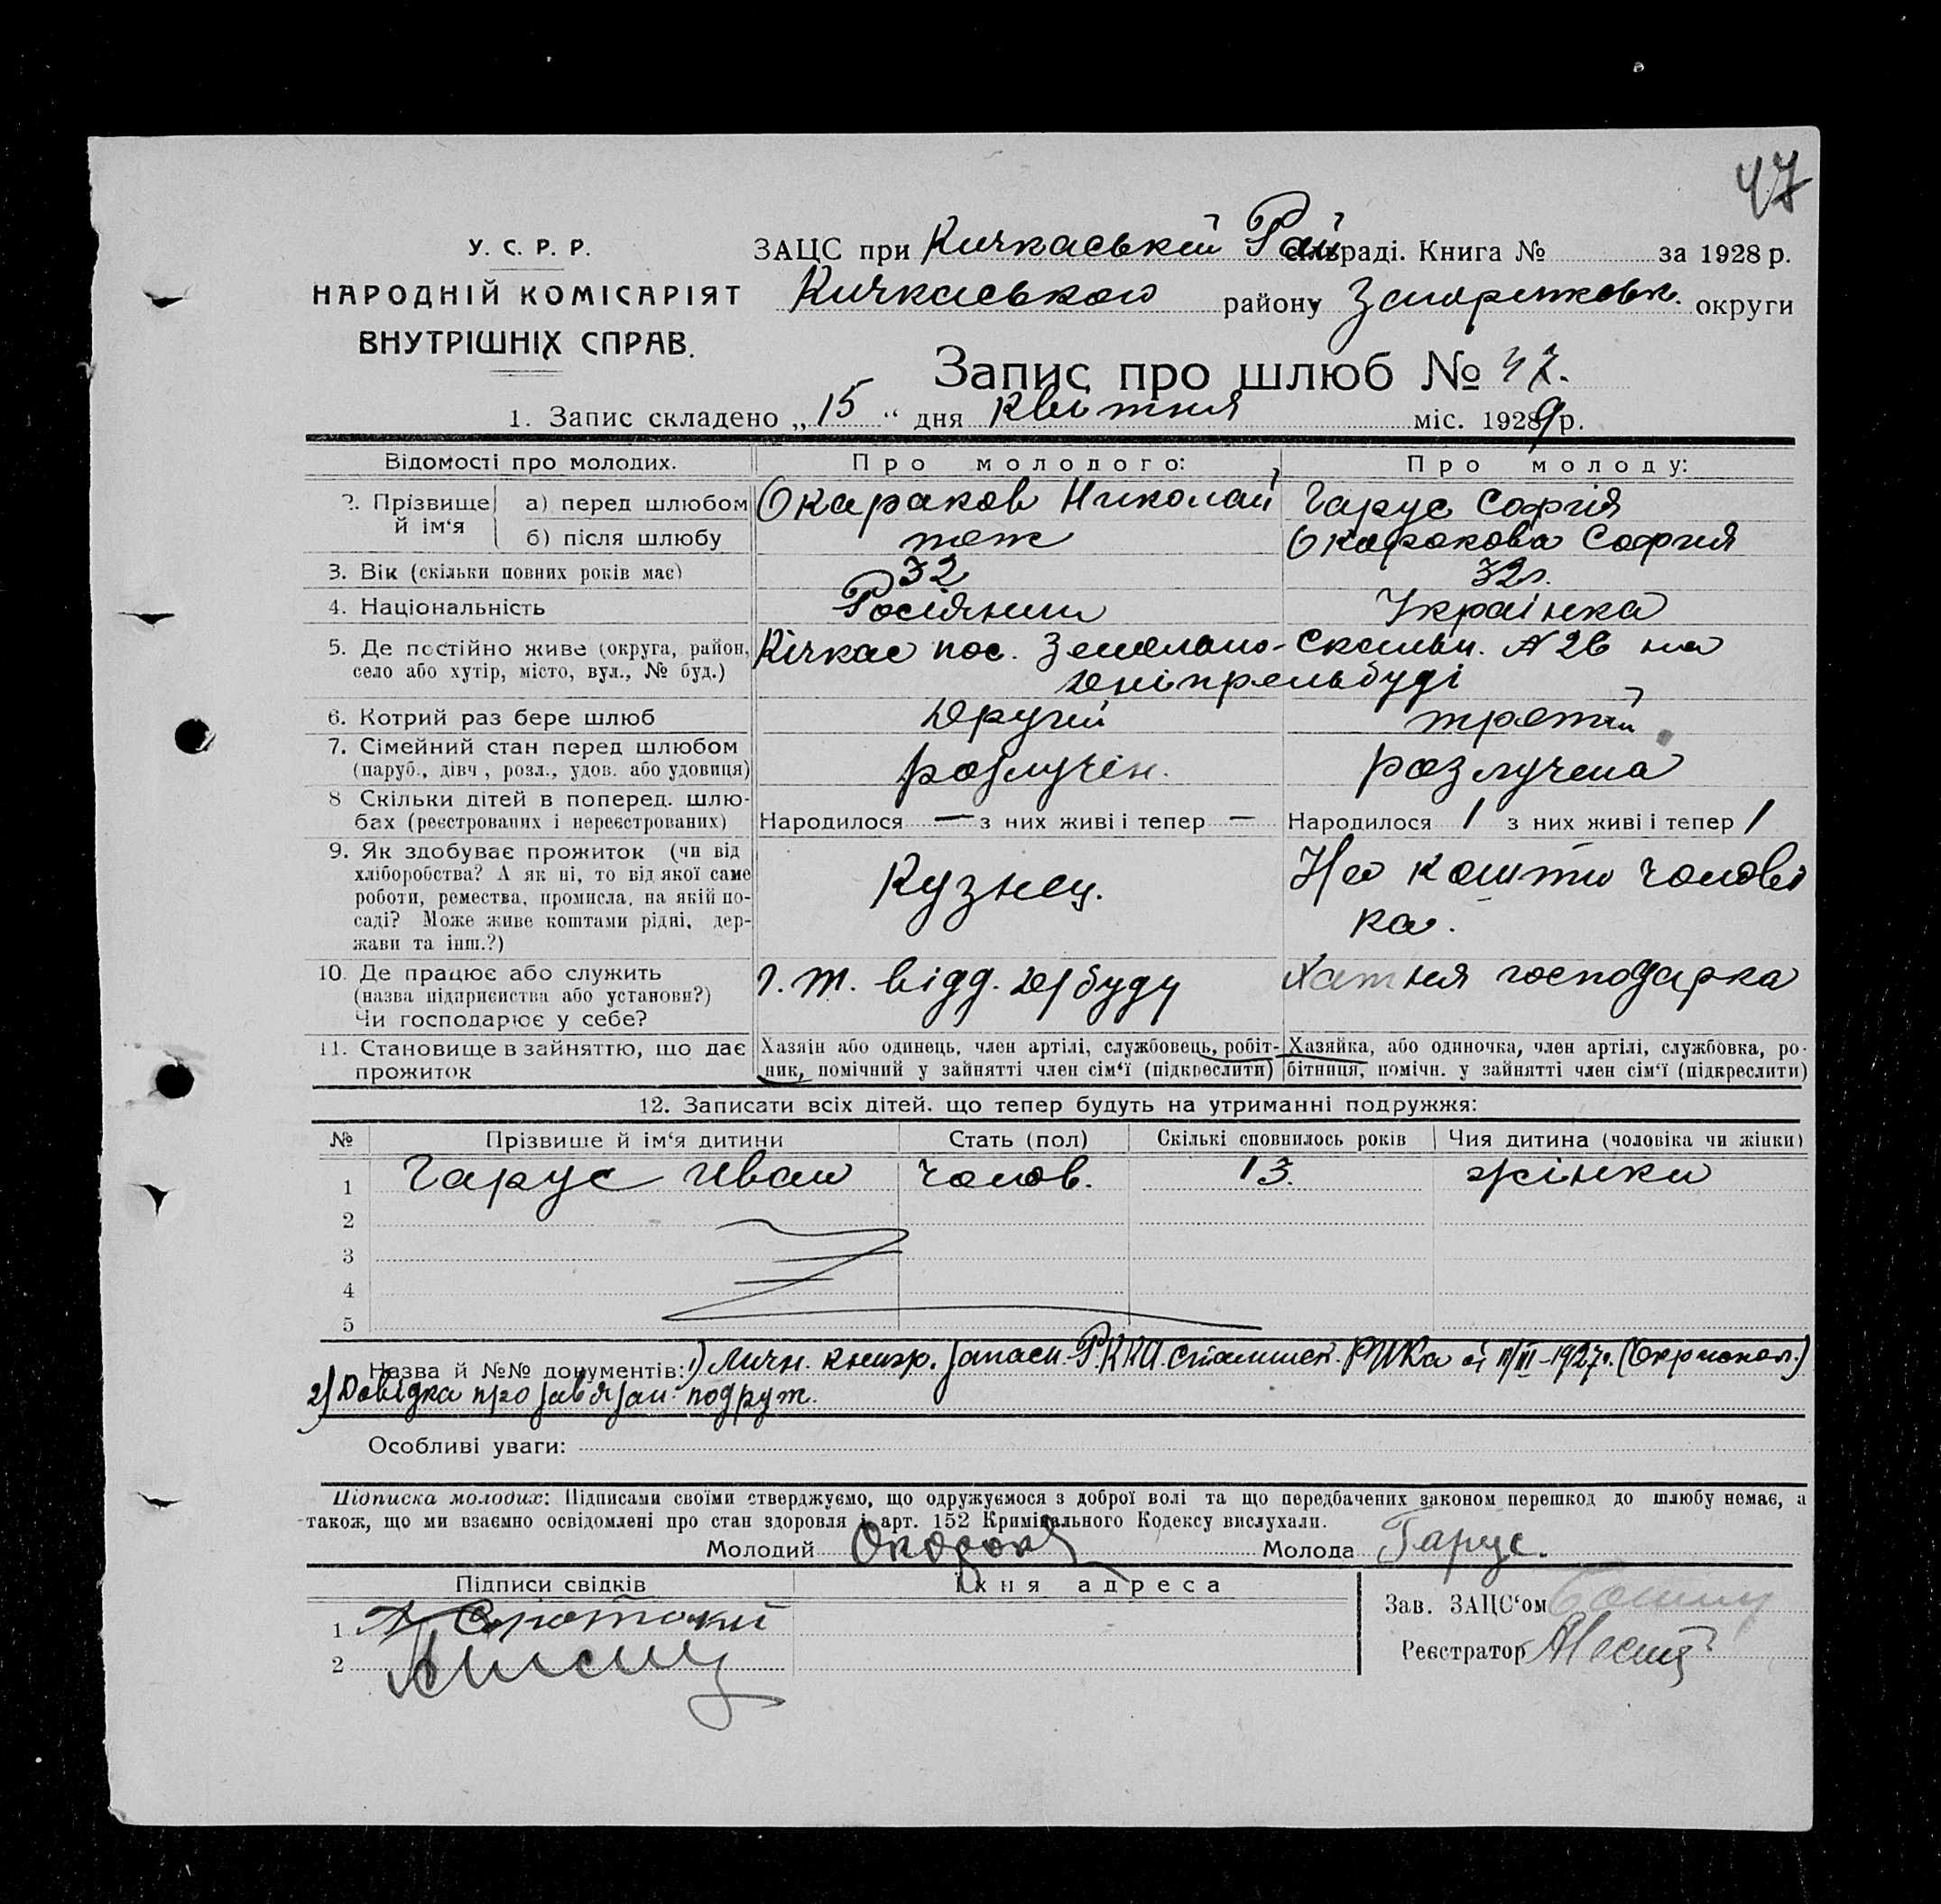 47
У. С. Р. Р.
НАРОДНІЙ КОМІСАРІЯТ
ВНУТРІШНІХ СПРАВ.
ЗАЦС при Кичкаській Рай сільраді. Книга № за 1928 р.
Кичкаського району Запоріжськ. округи
Запис про шлюб № 47.
1. Запис складено „15“ дня Квітня міс. 1928 9 р.
Відомості про молодих. Про молодого: Про молоду:
2. Прізвище й ім‘я а) перед шлюбом Окараков Николай Гарус Софія
б) після шлюбу тож Окаракова София
3. Вік (скільки повних років має) 32 32 р.
4. Національність Росіянин Українка
5. Де постійно живе (округа, район, село або хутір, місто, вул., № буд.) Кічкас пос. - Скельн. № 26 на
Дніпрельбуді
6. Котрий раз бере шлюб Другий третій
7. Сімейний стан перед шлюбом (паруб., дівч., розл., удов. або удовиця) розлучен. розлучена
8 Скільки дітей в поперед. шлюбах (реєстрованих і нереєстрованих) Народилося — з них живі і тепер — Народилося 1 з них живі і тепер 1
9. Як здобуває прожиток (чи від
хліборобства? А як ні, то від якої саме
роботи, ремества, промисла, на якій по-
саді? Може живе коштами рідні, дер-
жави та інш.?) Кузнец. На кошти чолові
ка.
10. Де працює або служить
(назва підприємства або установи?)
Чи господарює у себе? г. т. відд. Дзбуду Хатня господарка
11. Становище в зайняттю, що дає
прожиток
Хазяїн або одинець, член артілі, службовець, робіт-
ник, помічний у зайнятті член сім‘ї (підкреслити)
Хазяйка, або одиночка, член артілі, службовка, ро-
бітниця, помічн. у зайнятті член сім‘ї (підкреслити)
12. Записати всіх дітей. що тепер будуть на утриманні подружжя:
№ Прізвище й ім‘я дитини Стать (пол) Скількі сповнилось років Чия дитина (чоловіка чи жінки)
1 Гарус Иван чолов. 13. жінки
2
3
4
5
Назва й №№ документів: 1) Личн. книжк. запасн. Р.К.К.А. РИКа від 1927 р.
2) Довідка про подруж.
Особливі уваги:
Підписка молодих: Підписами своїми стверджуємо, що одружуємося з доброї волі та що передбачених законом перешкод до шлюбу немає, а
також, що ми взаємно освідомлені про стан здоровля і арт. 152 Кримінального Кодексу вислухали.
Молодий Молода Гарус.
Підписи свідків Їхня адреса
1
2
Зав. ЗАЦС‘ом
Реєстратор